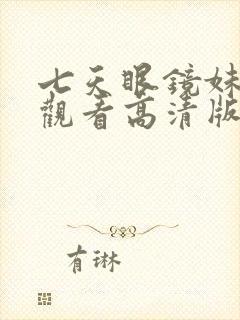 七天眼鏡妹
觀看高清版
有琳